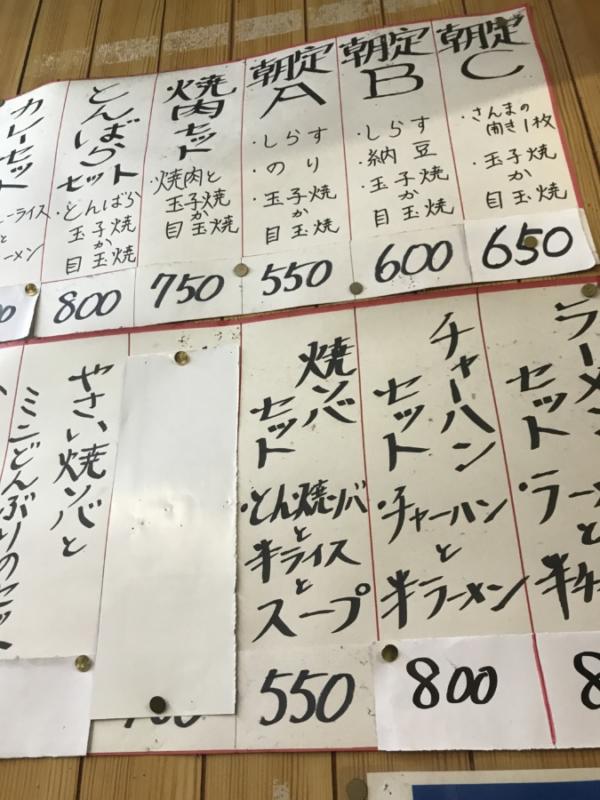 朝定
C
・さんまの
開き1枚
・玉子焼
か
目玉焼
650
朝定
B
・しらす
・納豆
・玉子焼
か
目玉焼
600
朝定
A
・しらす
・のり
・玉子焼
か
目玉焼
550
焼肉セット
・焼肉と
玉子焼
か
目玉焼
750
とんばら
セット
・とんばら
玉子焼
か
目玉焼
800
カレーセット
ーライス
と
ーメン
ラーメン
セット
・ラー
と
半チ
8
チャーハン
セット
・チャーハン
と
半ラーメン
800
焼ソバ
セット
・とん焼ソバ
と
半ライス
と
スープ
550
やさい焼ソバと
ミニどんぶりのセット